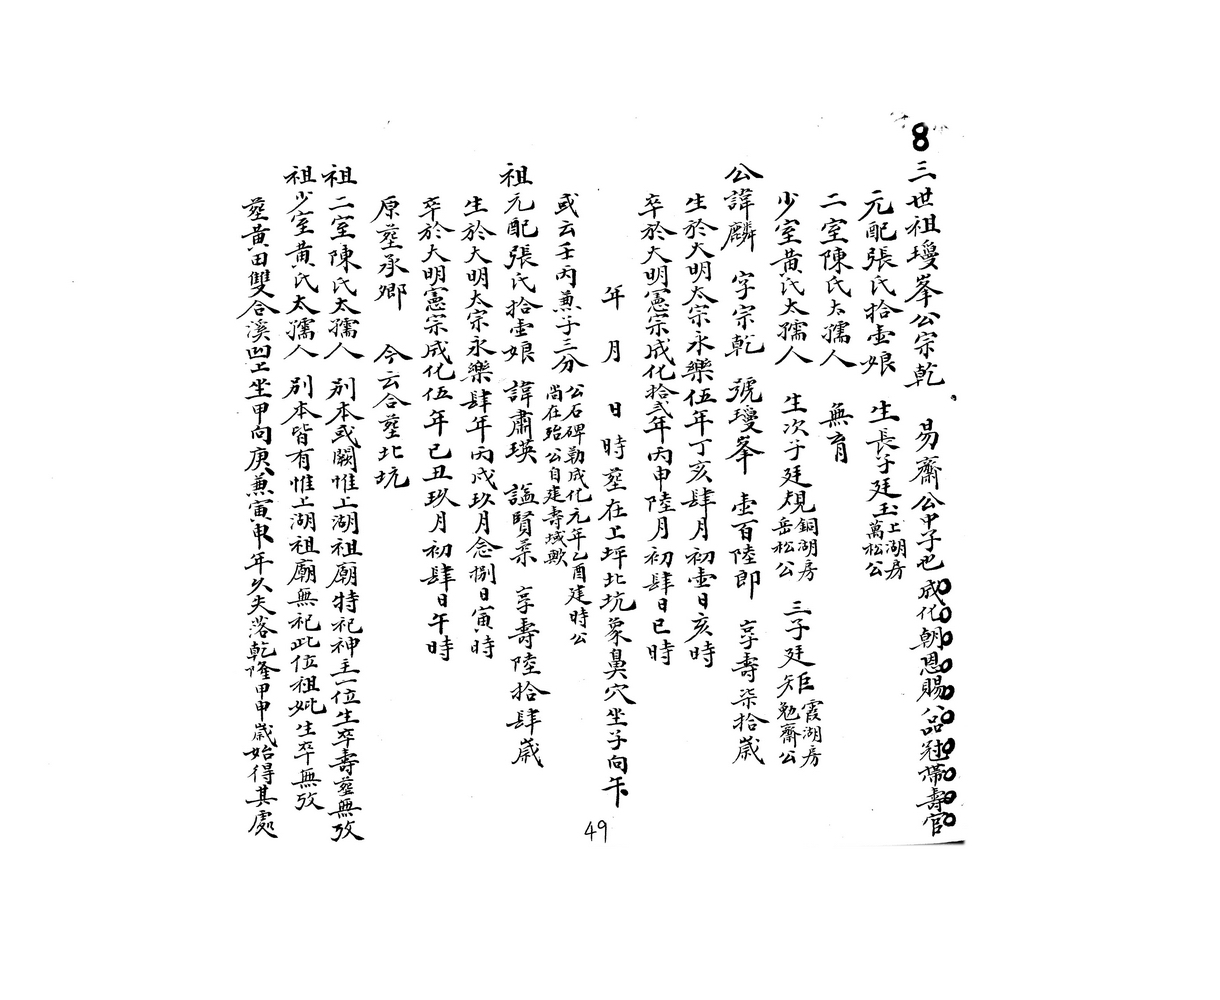 8
三世祖璦峯公宗乾 易齋公中子也 成化朝恩賜八品冠帶壽官
元配張氏拾壹娘 生長子廷玉 上湖房 萬松公
二室陳氏太孺人 無育
少室黃氏太孺人 生次子廷䂓 銅湖房 岳松公 三子廷矩 霞湖房 勉齋公
公諱麟 字宗乾 號璦峯 壹百陸郎 享壽柒拾歲
生於大明太宗永樂伍年丁亥肆月初壹日亥時
卒於大明憲宗成化拾貳年丙申陸月初肆日巳時
年 月 日 時 塟在上坪北坑象鼻穴坐子向午
或云壬丙兼子三分 公石碑勒成化元年乙酉建時公尚在殆公自建壽域歟
祖元配張氏拾壹娘 諱肅瑛 諡賢柔 享壽陸拾肆歲
生於大明太宗永樂肆年丙戌玖月念捌日寅時
卒於大明憲宗成化伍年己丑玖月初肆日午時
原塟承鄉 今云合塟北坑
祖二室陳氏太孺人 別本或闕惟上湖祖廟特祀神主一位生卒壽塟無攷
祖少室黃氏太孺人 別本皆有惟上湖祖廟無祀此位祖妣生卒無攷
塟黃田雙合溪凹上坐甲向庚兼寅申年久失落乾隆甲申歲始得其處
49